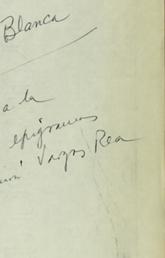 Blanca
a la
epigramas
Vargas Rea